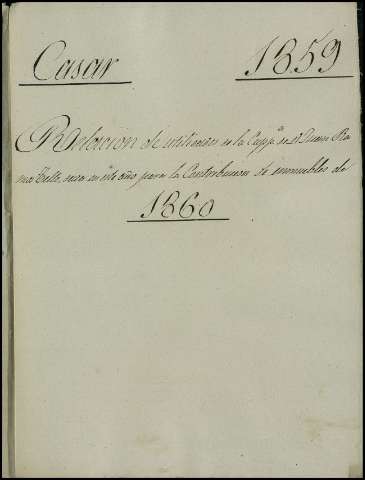 Casar 1859
Relacion de utilidades de la Capp.ª de Dⁿ Juan Ra
mos Tello, para en este año para la Contribucion de inmuebles de
1860